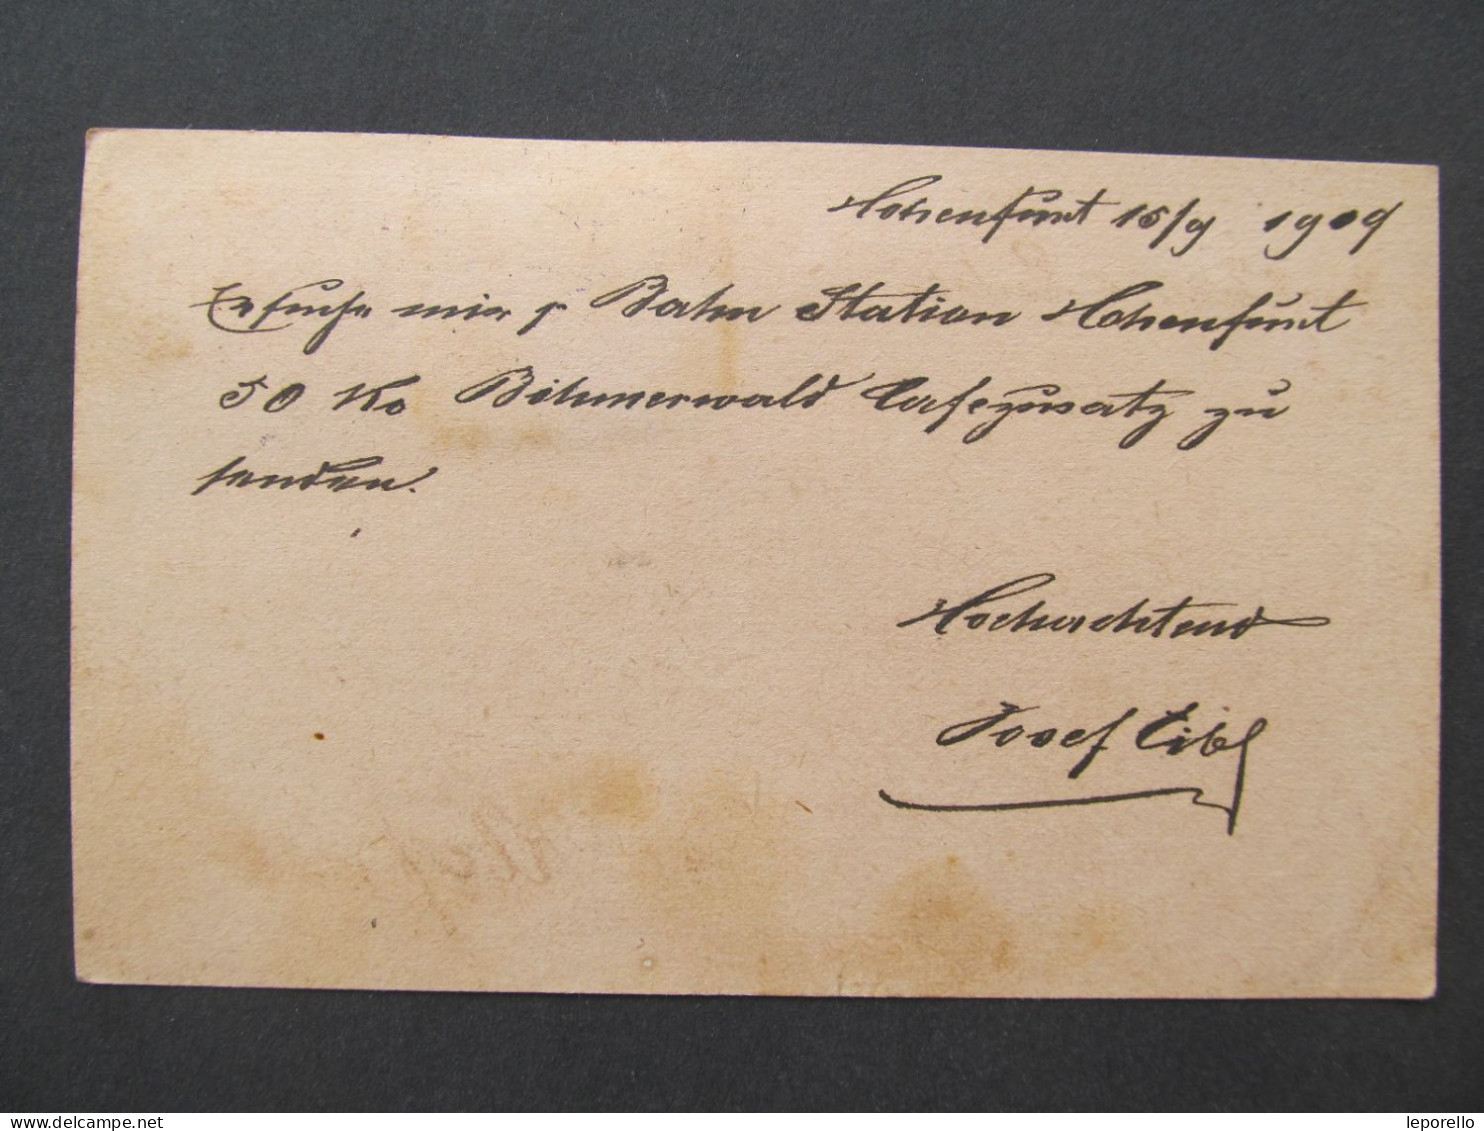 Hohenfurt 15/9 1909
Ersuche mir p Bahn Station Hohenfurt
50 Ko Böhmerwald Cafezusatz zu
senden.
Hochachtend
Josef Eibl
leporello